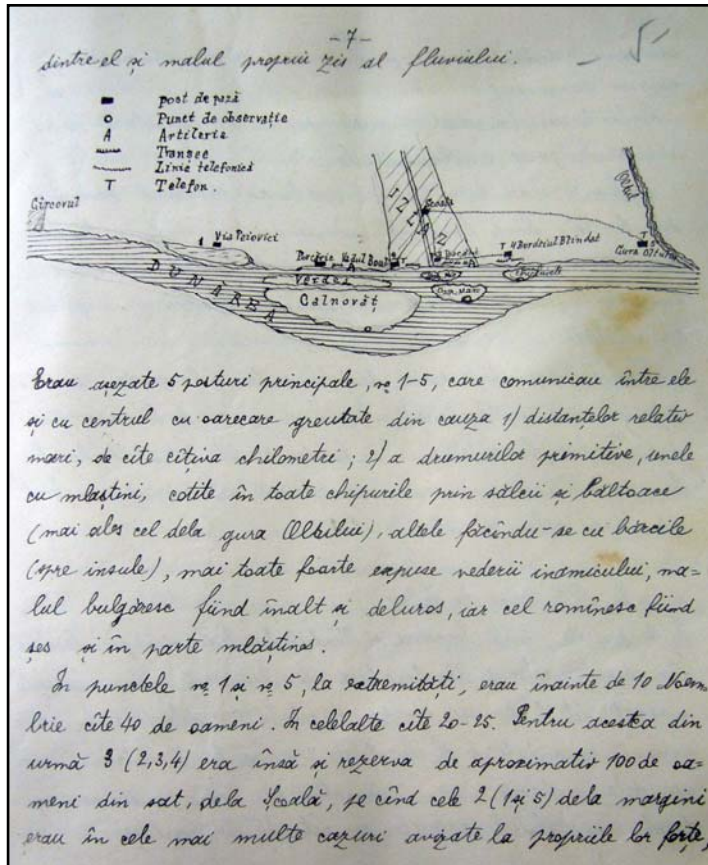 -7-
dintre el și malul propriu zis al fluviului.
post de pază
Punct de observație
A Artilerie
Tranșee
Linie telefonică
T Telefon.
Gîrcovul
1 Via Peiovici
Vadul
IZLAZ
Școala
T 4 Bordeiul Blindat
Oltul
T 5
Gura Oltului
DUNĂREA
Verdea
Calnovăț
Erau așezate 5 posturi principale, nọ 1-5, care comunicau între ele
și cu centrul cu oarecare greutate din cauza 1) distanțelor relativ
mari, de cîte cîțiva chilometri; 2) a drumurilor primitive, unele
cu mlaștini, cotite în toate chipurile prin sălcii și băltoace
(mai ales cel dela gura Oltului), altele făcîndu-se cu bărcile
(spre insule), mai toate foarte expuse vederii inamicului, ma=
lul bulgăresc fiind înalt și deluros, iar cel romînesc fiind
șes și în parte mlăștinos.
In punctele nọ 1 și nọ 5, la extremități, erau înainte de 10 Noem
brie cîte 40 de oameni. In celelalte cîte 20-25. Pentru acestea din
urmă 3 (2,3,4) era însă și rezerva de aproximativ 100 de oa=
meni din sat, dela Școală, pe cînd cele 2 (1 și 5) dela margini
erau în cele mai multe cazuri avizate la propriile lor forțe,